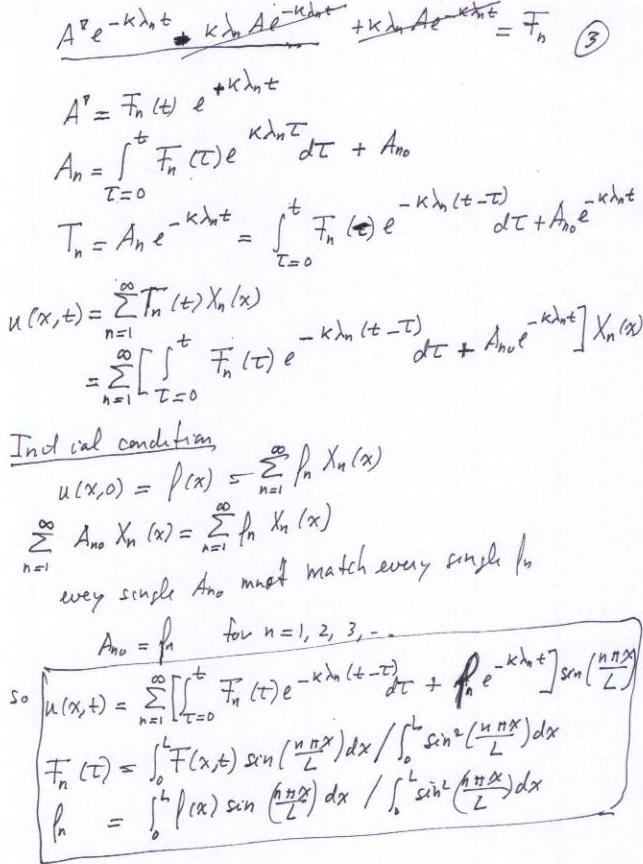 A'e^{-κλ_n t} - κλ_n A e^{-κλ_n t} + κλ_n A e^{-κλ_n t} = F_n ③
A' = F_n(t) e^{+κλ_n t}
A_n = ∫_{τ=0}^{t} F_n(τ) e^{κλ_n τ} dτ + A_{n0}
T_n = A_n e^{-κλ_n t} = ∫_{τ=0}^{t} F_n(τ) e^{-κλ_n(t-τ)} dτ + A_{n0} e^{-κλ_n t}
u(x,t) = ∑_{n=1}^{∞} T_n(t) X_n(x)
= ∑_{n=1}^{∞} [∫_{τ=0}^{t} F_n(τ) e^{-κλ_n(t-τ)} dτ + A_{n0} e^{-κλ_n t}] X_n(x)
Initial condition
u(x,0) = f(x) = ∑_{n=1}^{∞} f_n X_n(x)
∑_{n=1}^{∞} A_{n0} X_n(x) = ∑_{n=1}^{∞} f_n X_n(x)
every single A_{n0} must match every single f_n
A_{n0} = f_n for n = 1, 2, 3, ...
so u(x,t) = ∑_{n=1}^{∞} [∫_{τ=0}^{t} F_n(τ) e^{-κλ_n(t-τ)} dτ + f_n e^{-κλ_n t}] sin(nπx/L)
F_n(τ) = ∫_0^L F(x,t) sin(nπx/L) dx / ∫_0^L sin²(nπx/L) dx
f_n = ∫_0^L f(x) sin(nπx/L) dx / ∫_0^L sin²(nπx/L) dx